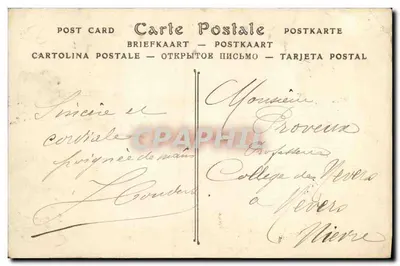 POST CARD Carte Postale POSTKARTE
BRIEFKAART — POSTKAART
CARTOLINA POSTALE — ОТКРЫТОЕ ПИСЬМО — TARJETA POSTAL
Sincère et
cordiale
poignée de main
Monsieur
Proveux
Professeur
Collège de Nevers
à Nevers
Nièvre